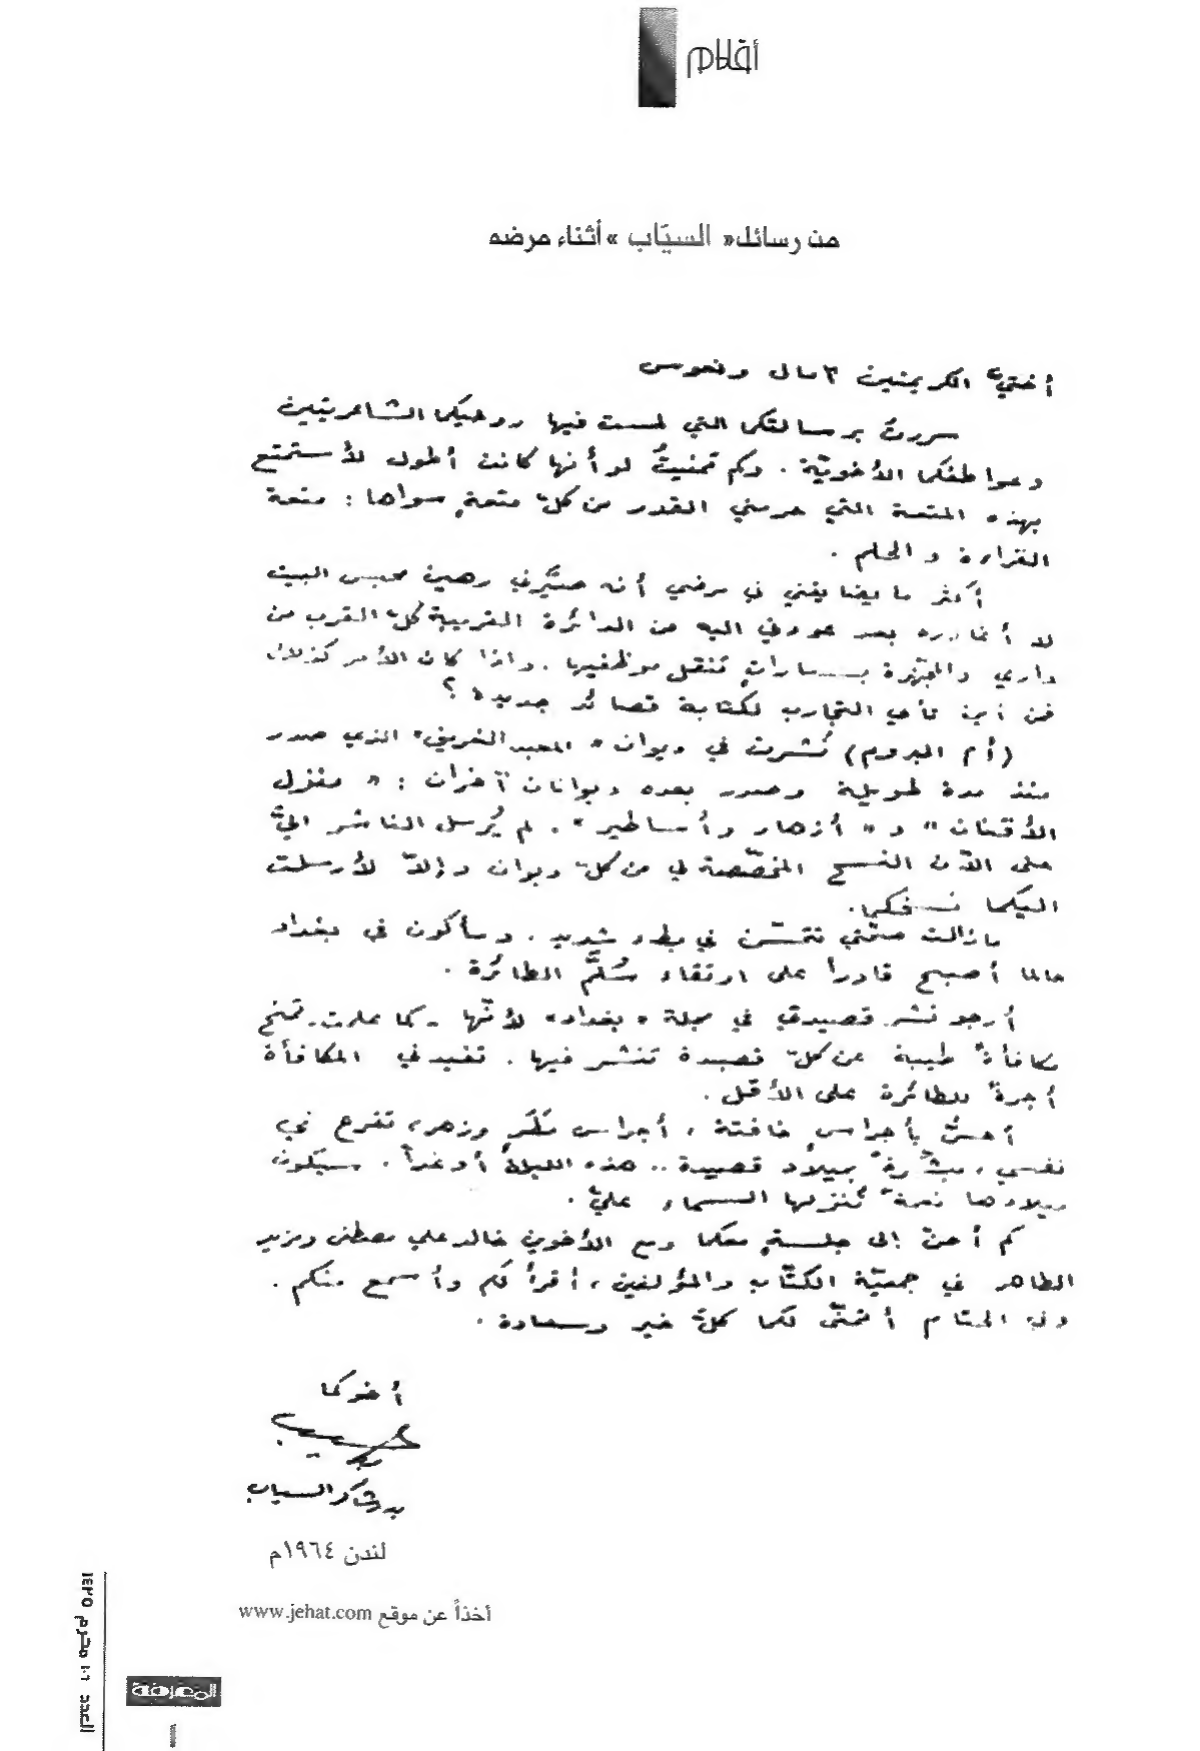 أقلام
من رسائل « السيّاب » أثناء مرضه
أختيّ الكريمتين آمال ونفوس
سررتُ برسالتكما التي لمست فيها روحيكما الشاعريتين
وعواطفكما الأخويّة . وكم تمنيتُ لو أنها كانت أطول لأستمتع
بهذه المتعة التي حرمني القدر من كلّ متعةٍ سواها : متعة
القراءة والحلم .
أكثر ما يضايقني في مرضي أنه صيّرني رهين محبس البيت
لا أغادره بعد عودتي اليه من الدائرة القريبة كلّ القرب من
داري والمجهّزة بسياراتٍ تنقل موظفيها . واذا كان الأمر كذلك
فمن أين تأتي التجارب لكتابة قصائد جديدة ؟
(أم البروم) نُشرت في ديوان « المعبد الغريق » الذي صدر
منذ مدة طويلة وصدر بعده ديوانان آخران : « منزل
الأقنان » و « أزهار وأساطير » . لم يُرسل الناشر اليّ
حتى الآن النسخ المخصّصة لي من كلّ ديوان وإلاّ لأرسلت
اليكما نسختكما.
مازالت صحّتي تتحسّن في بطء شديد . وسأكون في بغداد
حالما أصبح قادراً على ارتقاء سُلّم الطائرة .
أرجو نشر قصيدتي في مجلة « بغداد » لأنّها - كما علمت - تمنح
مكافأةً طيبة عن كلّ قصيدة تنشر فيها . تفيدني المكافأة
أجرةً للطائرة على الأقل .
أحسّ بأجراسٍ خافتة ، أجراس مَطَرٍ وزهر، تقرع في
نفسي ، مبشّرةً بميلاد قصيدة .. هذه الليلةَ أو غداً . سيكون
ميلادها نعمةً تُنزلها السماء عليّ .
كم أحنّ إلى جلسةٍ معكما ومع الأخوين خالد علي مصطفى ومزيد
الظاهر في جمعيّة الكتّاب والمؤلفين ، أقرأ لكم وأسمع منكم .
وفي الختام أتمنّى لكما كلّ خير وسعادة .
أخوكما
بدر شاكر السياب
لندن ١٩٦٤م
أخذاً عن موقع www.jehat.com
العدد ١٠٦ محرم ١٤٢٥
المعرفة